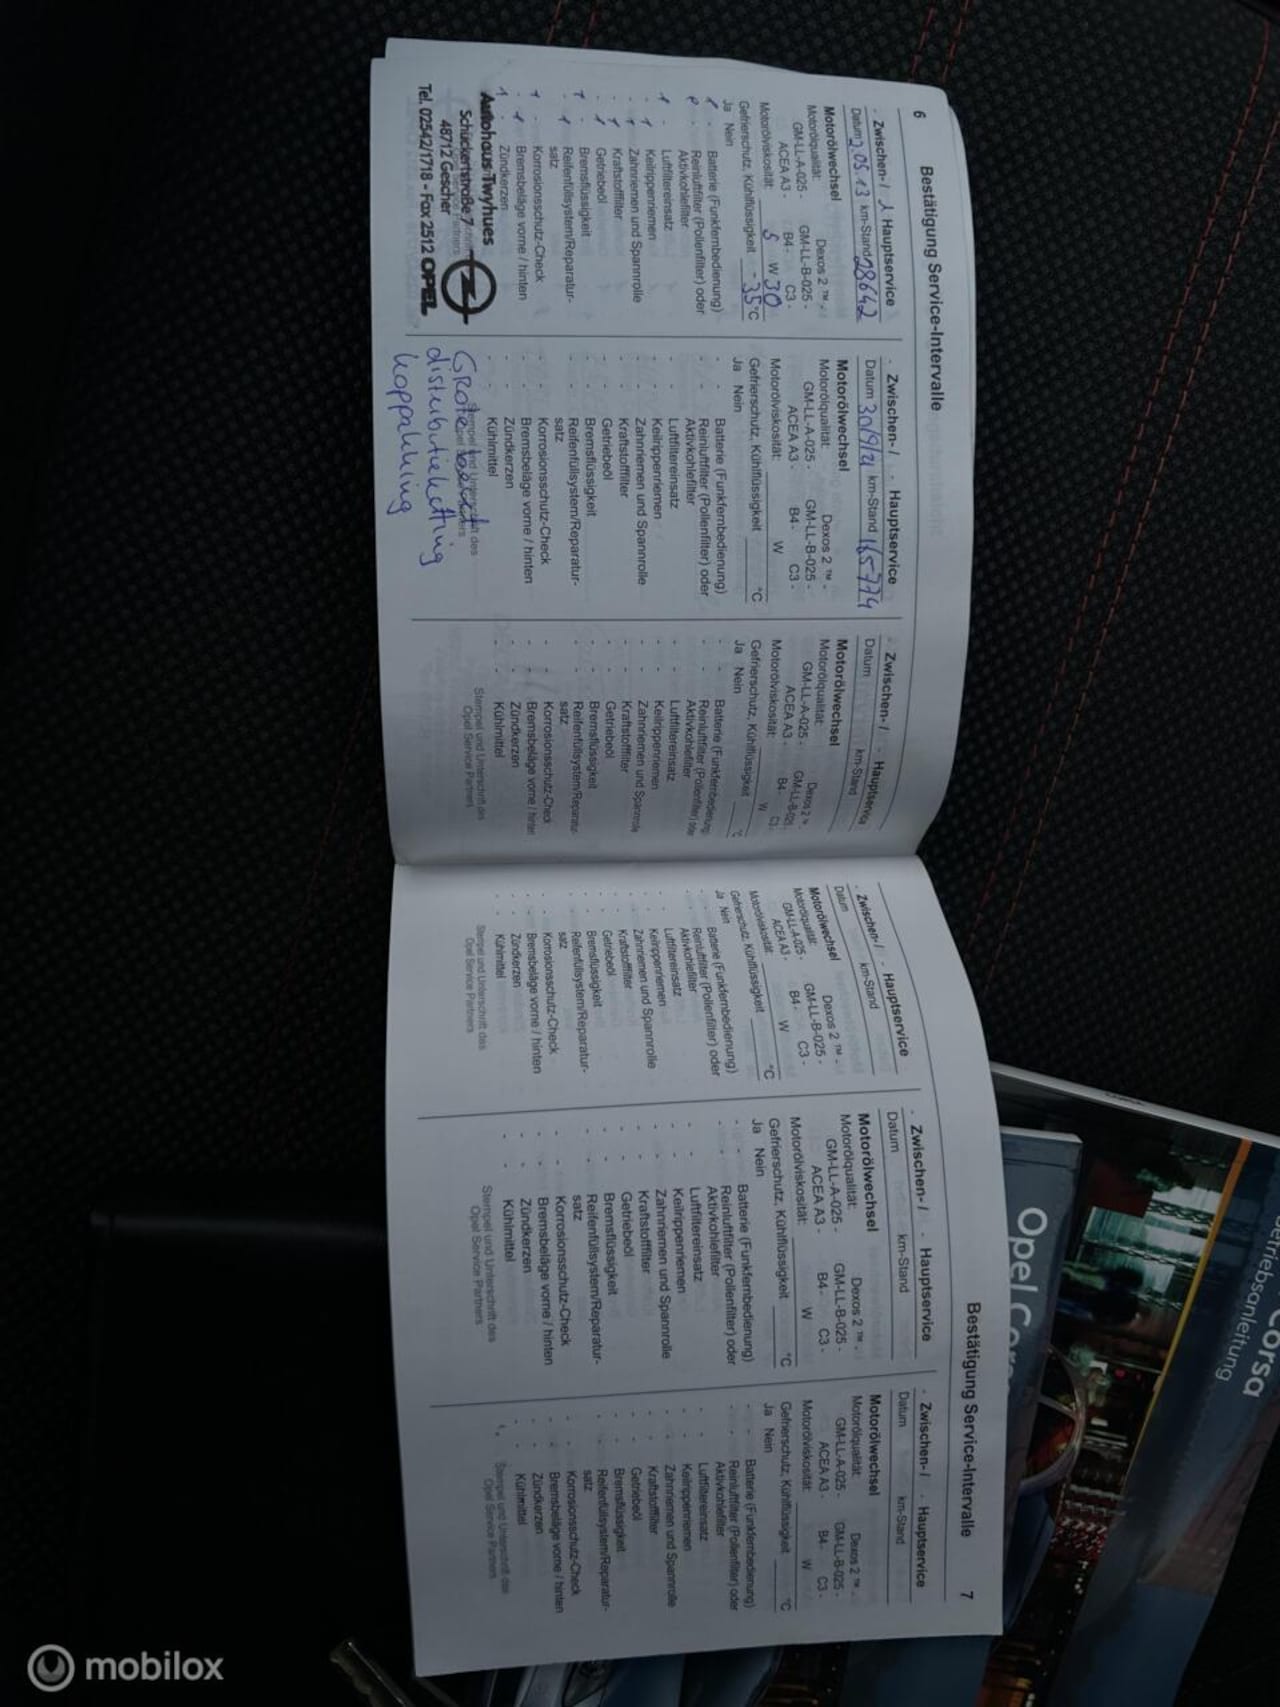 6
Bestätigung Service-Intervalle
Zwischen- / Hauptservice
Datum 2.05.13 km-Stand 28642
Motorölwechsel
Motorölqualität: Dexos 2 ™ -
GM-LL-A-025 - GM-LL-B-025 -
ACEA A3 - B4 - C3 -
Motorölviskosität: 5 W 30
Gefrierschutz, Kühlflüssigkeit -35 °C
Ja Nein
Batterie (Funkfernbedienung)
Reinluftfilter (Pollenfilter) oder
Aktivkohlefilter
Luftfiltereinsatz
Keilrippenriemen
Zahnriemen und Spannrolle
Kraftstofffilter
Getriebeöl
Bremsflüssigkeit
Reifenfüllsystem/Reparatur-
satz
Korrosionsschutz-Check
Bremsbeläge vorne / hinten
Zündkerzen
Autohaus Twyhues
Schuckertstraße 7
48712 Gescher
Tel. 02542/1718 - Fax 2512 OPEL
- Zwischen- / - Hauptservice
Datum 30/9/21 km-Stand 165774
Motorölwechsel
Motorölqualität: Dexos 2 ™ -
GM-LL-A-025 - GM-LL-B-025 -
ACEA A3 - B4 - C3 -
Motorölviskosität: W
Gefrierschutz, Kühlflüssigkeit °C
Ja Nein
- - Batterie (Funkfernbedienung)
- - Reinluftfilter (Pollenfilter) oder
Aktivkohlefilter
- - Luftfiltereinsatz
- - Keilrippenriemen
- - Zahnriemen und Spannrolle
- - Kraftstofffilter
- - Getriebeöl
- - Bremsflüssigkeit
- - Reifenfüllsystem/Reparatur-
satz
- - Korrosionsschutz-Check
- - Bremsbeläge vorne / hinten
- - Zündkerzen
- - Kühlmittel
Stempel und Unterschrift des
Grote
distributieketting
koppakking
- Zwischen- / - Hauptservice
Datum km-Stand
Motorölwechsel
Motorölqualität: Dexos 2 ™
GM-LL-A-025 - GM-LL-B-025
ACEA A3 - B4 - C3 -
Motorölviskosität: W
Gefrierschutz, Kühlflüssigkeit °C
Ja Nein
- - Batterie (Funkfernbedienung)
- - Reinluftfilter (Pollenfilter) oder
Aktivkohlefilter
- - Luftfiltereinsatz
- - Keilrippenriemen
- - Zahnriemen und Spannrolle
- - Kraftstofffilter
- - Getriebeöl
- - Bremsflüssigkeit
- - Reifenfüllsystem/Reparatur-
satz
- - Korrosionsschutz-Check
- - Bremsbeläge vorne / hinten
- - Zündkerzen
- - Kühlmittel
Stempel und Unterschrift des
Opel Service Partners
Bestätigung Service-Intervalle
7
- Zwischen- / - Hauptservice
Datum km-Stand
Motorölwechsel
Motorölqualität: Dexos 2 ™ -
GM-LL-A-025 - GM-LL-B-025 -
ACEA A3 - B4 - C3 -
Motorölviskosität: W
Gefrierschutz, Kühlflüssigkeit °C
Ja Nein
- - Batterie (Funkfernbedienung)
- - Reinluftfilter (Pollenfilter) oder
Aktivkohlefilter
- - Luftfiltereinsatz
- - Keilrippenriemen
- - Zahnriemen und Spannrolle
- - Kraftstofffilter
- - Getriebeöl
- - Bremsflüssigkeit
- - Reifenfüllsystem/Reparatur-
satz
- - Korrosionsschutz-Check
- - Bremsbeläge vorne / hinten
- - Zündkerzen
- - Kühlmittel
Stempel und Unterschrift des
Opel Service Partners
- Zwischen- / - Hauptservice
Datum km-Stand
Motorölwechsel
Motorölqualität: Dexos 2 ™ -
GM-LL-A-025 - GM-LL-B-025 -
ACEA A3 - B4 - C3 -
Motorölviskosität: W
Gefrierschutz, Kühlflüssigkeit °C
Ja Nein
- - Batterie (Funkfernbedienung)
- - Reinluftfilter (Pollenfilter) oder
Aktivkohlefilter
- - Luftfiltereinsatz
- - Keilrippenriemen
- - Zahnriemen und Spannrolle
- - Kraftstofffilter
- - Getriebeöl
- - Bremsflüssigkeit
- - Reifenfüllsystem/Reparatur-
satz
- - Korrosionsschutz-Check
- - Bremsbeläge vorne / hinten
- - Zündkerzen
- - Kühlmittel
Stempel und Unterschrift des
Opel Service Partners
- Zwischen- / - Hauptservice
Datum km-Stand
Motorölwechsel
Motorölqualität: Dexos 2 ™ -
GM-LL-A-025 - GM-LL-B-025 -
ACEA A3 - B4 - C3 -
Motorölviskosität: W
Gefrierschutz, Kühlflüssigkeit °C
Ja Nein
- - Batterie (Funkfernbedienung)
- - Reinluftfilter (Pollenfilter) oder
Aktivkohlefilter
- - Luftfiltereinsatz
- - Keilrippenriemen
- - Zahnriemen und Spannrolle
- - Kraftstofffilter
- - Getriebeöl
- - Bremsflüssigkeit
- - Reifenfüllsystem/Reparatur-
satz
- - Korrosionsschutz-Check
- - Bremsbeläge vorne / hinten
- - Zündkerzen
- - Kühlmittel
Stempel und Unterschrift des
Opel Service Partners
Corsa
Betriebsanleitung
Opel Corsa
mobilox